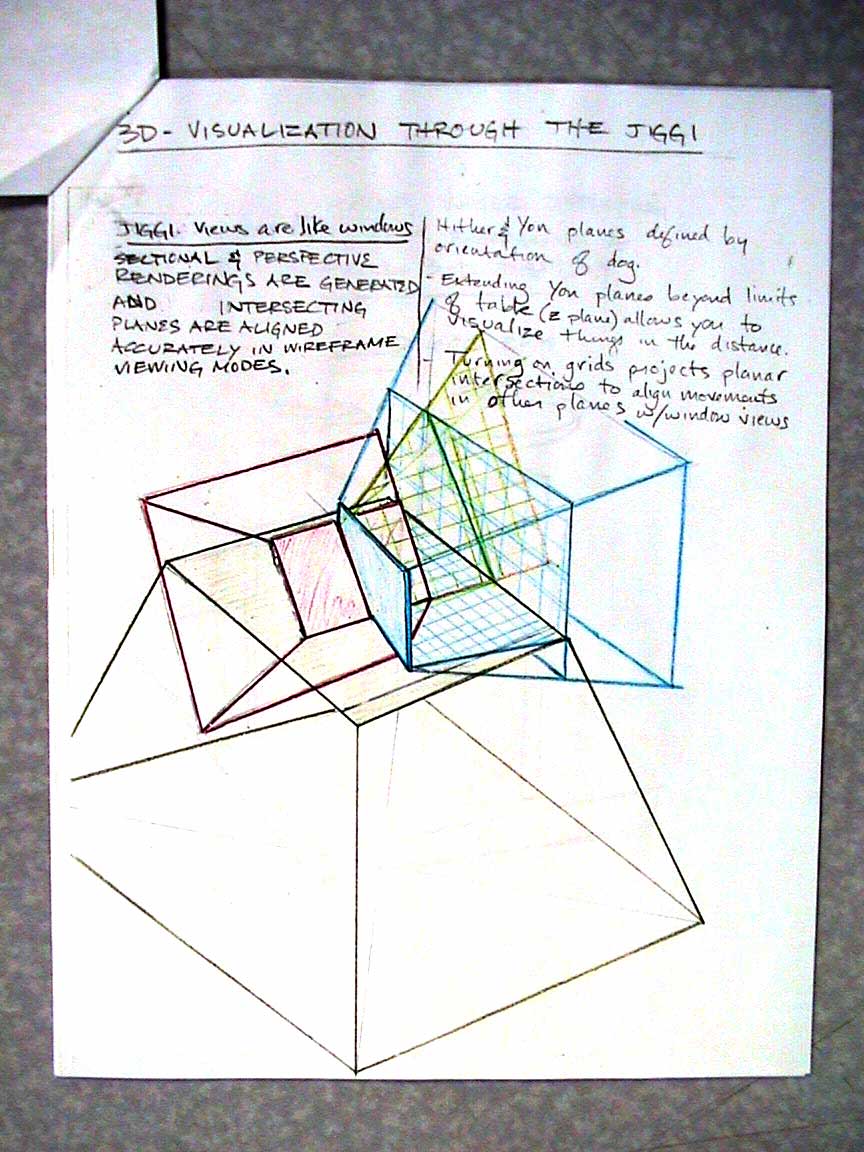 3D - VISUALIZATION THROUGH THE JIGGI
JIGGI. Views are like windows
SECTIONAL & PERSPECTIVE
RENDERINGS ARE GENERATED
AND INTERSECTING
PLANES ARE ALIGNED
ACCURATELY IN WIREFRAME
VIEWING MODES.
Hither & Yon planes defined by
orientation of dog.
- Extending Yon planes beyond limits
of table (z plane) allows you to
visualize things in the distance.
- Turning on grids projects planar
intersections to align movements
in other planes w/window views